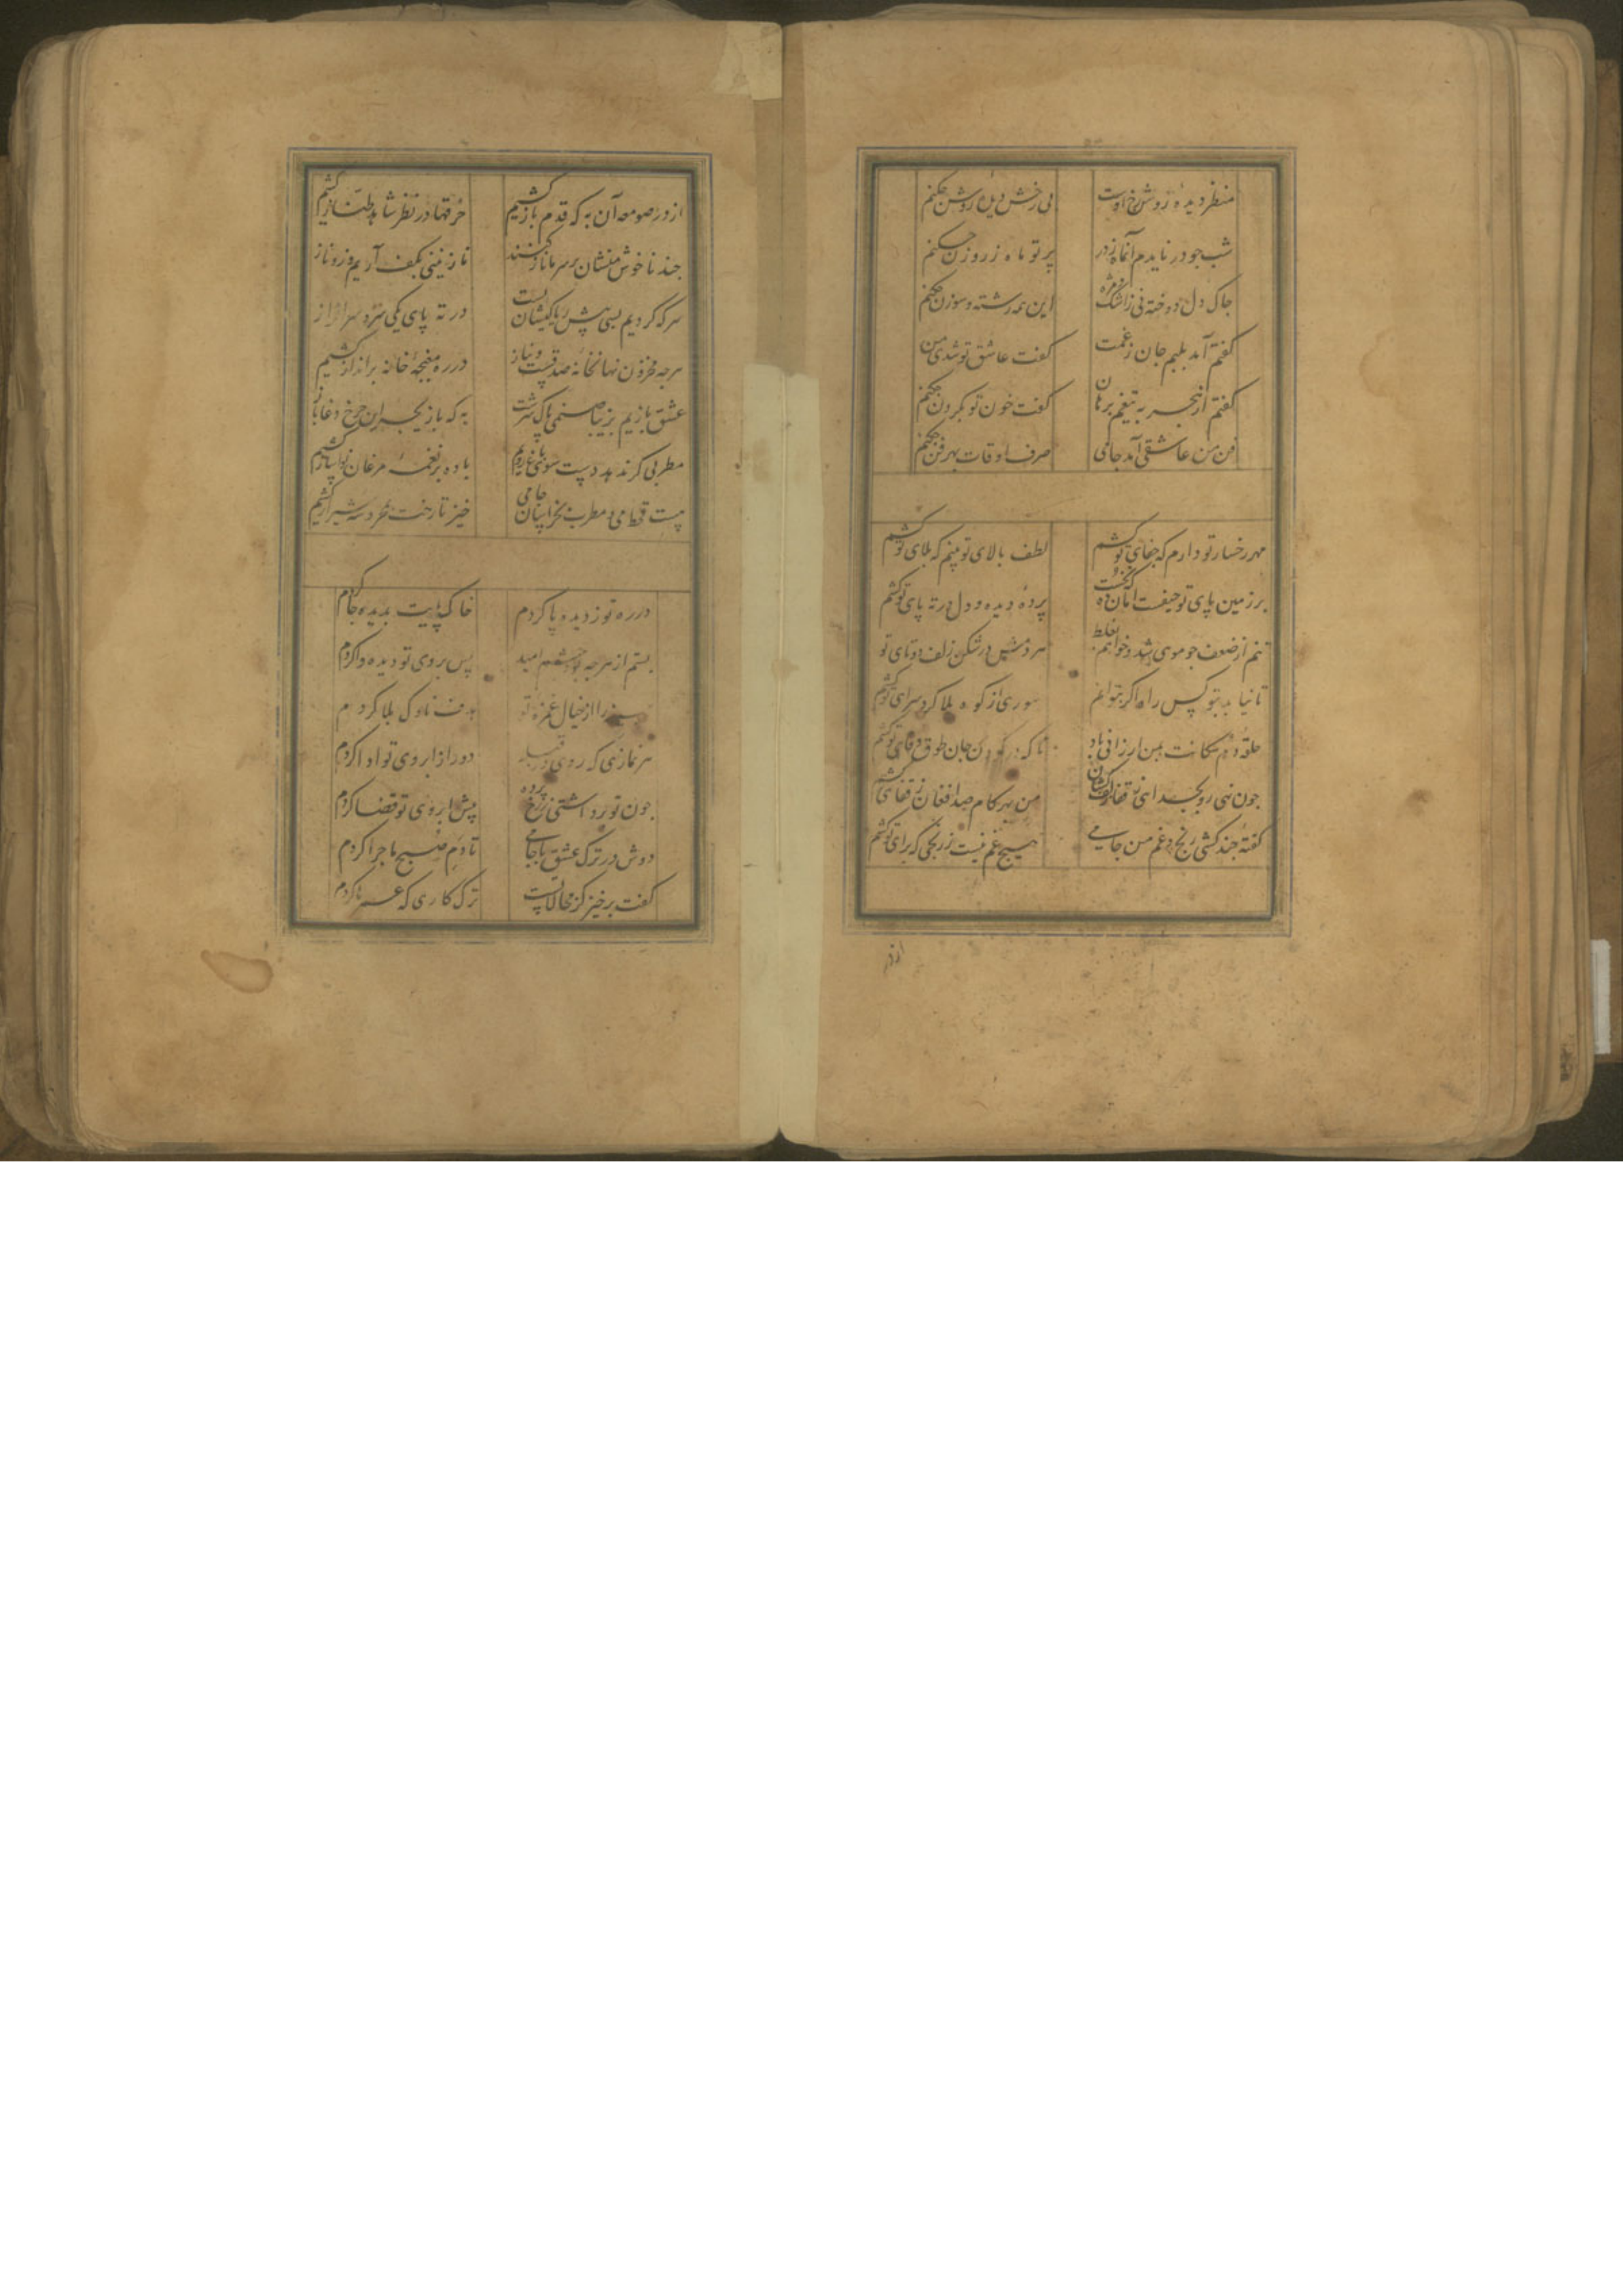 منظر دیده ز روشن رخ اوست بی رخش دیده روشن چکنم
شب جو در نایدم آنماه ز در پرتو ماه ز روزن چکنم
جاک دل دوخته نی زاشک و مژه این همه رشته و سوزن چکنم
کفتم آمد بلبم جان ز غمت کفت عاشق تو شدی من چکنم
کفتم از هجر به تیغم برهان کفت خون تو بکردن چکنم
فن من عاشقی آمد جامی صرف اوقات بهر فن چکنم
مهر رخسار تو دارم که جفای تو کشم لطف بالای تو بینم که بلای تو کشم
بر زمین پای تو حیفست امان ده که نخست پرده دیده و دل در ته پای تو کشم
تنم از ضعف جو موی شد و خواهم بغلط هر دمش در شکن زلف دوتای تو
تا نیابد بتو کس راه اکر بتوانم سوری از کوه بلا کرد سرای تو کشم
حلقه دم سکانت بمن ارزانی باد تا که در کردن جان طوق وفای تو کشم
جون نهی رو بجدائی ز قفا رقص کنان من بهر کام صد افغان ز قفای تو کشم
کفته جند کشی رنج و غم من جامی هیچ غم نیست ز رنجی که برای تو کشم
از در
از در صومعه آن به که قدم باز کشیم خرقها در نظر شاهد طناز کشیم
جند ناخوش منشان بر سر ما ناز کنند نازنینی بکف آریم و زو ناز
سر که کردیم بسی پیش ریا کیشان پست در ته پای یکی سرو سرافراز
هرجه مخزون نهانخانه صدقست و نیاز در ره مغبجه خانه برانداز کشیم
عشق بازیم بزیبا صنمی پاک سرشت به که بازیجه این جرخ دغا باز
مطربی کر ندهد دست سوی باغ رویم باده بر نغمه مرغان نواساز کشیم
هست قحط می و مطرب بخراسان جامی خیز تا رخت بخرد سوی شیراز کشیم
در ره تو ز دیده پا کردم خاک پایت بدیده جا کردم
بستم از هرجه بود جشم امید پس بروی تو دیده وا کردم
سینه را از خیال غمزه تو هدف ناوک بلا کردم
هر نمازی که روی در قبله دور از ابروی تو ادا کردم
جون تو برداشتی ز رخ پرده پیش ابروی تو قضا کردم
دوش در ترک عشق با جامی تا دم صبح ماجرا کردم
کفت برخیز کز محالاتست ترک کاری که عمرها کردم